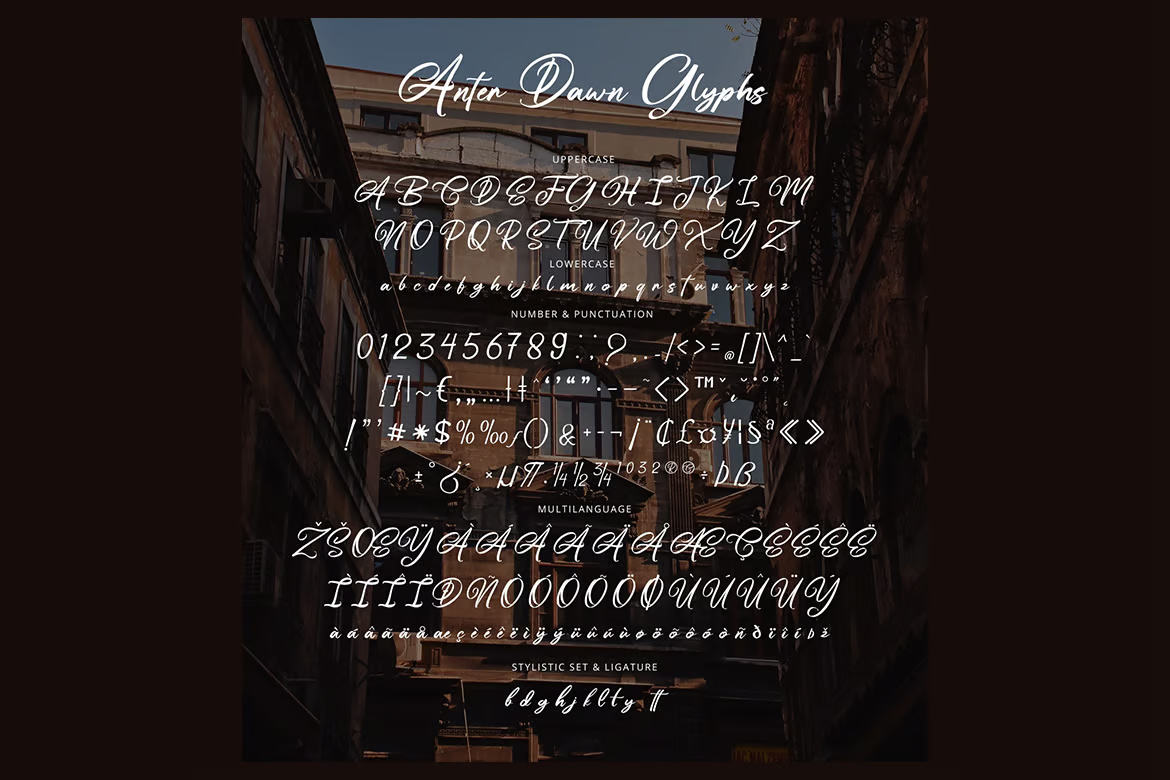 Anter Dawn Glyphs
UPPERCASE
A B C D E F G H I J K L M
N O P Q R S T U V W X Y Z
LOWERCASE
a b c d e f g h i j k l m n o p q r s t u v w x y z
NUMBER & PUNCTUATION
0 1 2 3 4 5 6 7 8 9 : ; ? , . - / < > = @ [ ] \ ^ _ `
{ } | ~ € ‚ „ … † ‡ ˆ ‘ ’ “ ” • – — ˜ ‹ › ™ ˇ ˛ ˘ ˙ ° ˝ ¸
! " ' # * $ % ‰ ƒ ( ) & + - ¬ ¡ ¨ ₵ £ ¤ ¥ ¦ § ª « »
± ° ¿ ´ ¸ × µ π · ¼ ½ ¾ ¹ ⁰ ³ ² ® © ÷ Þ ß
MULTILANGUAGE
Ž Š Œ Ÿ À Á Â Ã Ä Å Æ Ç È É Ê Ë
Ì Í Î Ï Ð Ñ Ò Ó Ô Õ Ö Ø Ù Ú Û Ü Ý
à á â ã ä å æ ç è é ê ë ì ÿ ý ü û ú ù ø ö õ ô ó ò ñ ð ï î í þ ž
STYLISTIC SET & LIGATURE
b d g h j k l t y tt